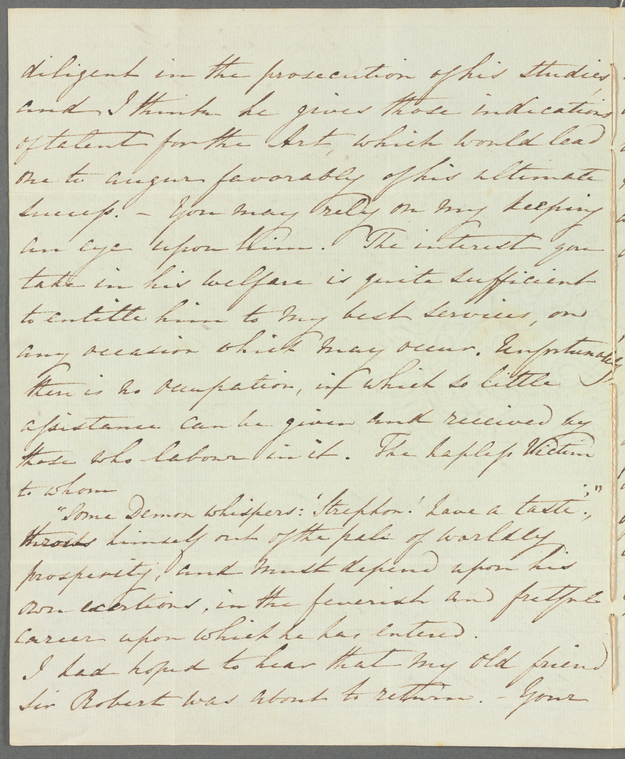 diligent in the prosecution of his studies,
and I think he gives those indications
of talent for the Art, which would lead
one to augur favorably of his ultimate
success. – You may rely on my keeping
an eye upon him. The interest you
take in his welfare is quite sufficient
to entitle him to my best services, on
any occasion which may occur. Unfortunately
there is no occupation, in which so little
assistance can be given and received by
those who labour in it. The hapless Victim
to whom
"Some Demon whispers: 'Strephon! have a taste';"
throws himself out of the pale of worldly
prosperity, and must depend upon his
own exertions, in the feverish and fretful
career upon which he has entered.
I had hoped to hear that my old friend
Sir Robert was about to return. – Your